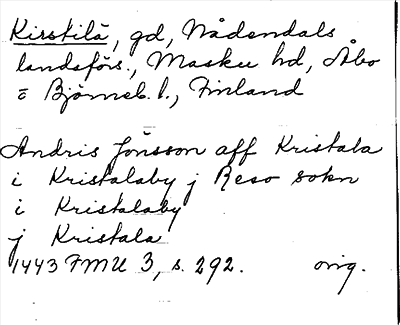 Kirstilä, gd, Nådendals
landsförs., Masku hd, Åbo
o Björneb. l., Finland
Andris Jönsson aff Kristala
i Kristalaby j Reso sokn
i Kristalaby
j Kristala
1443 FMU 3, s. 292. orig.